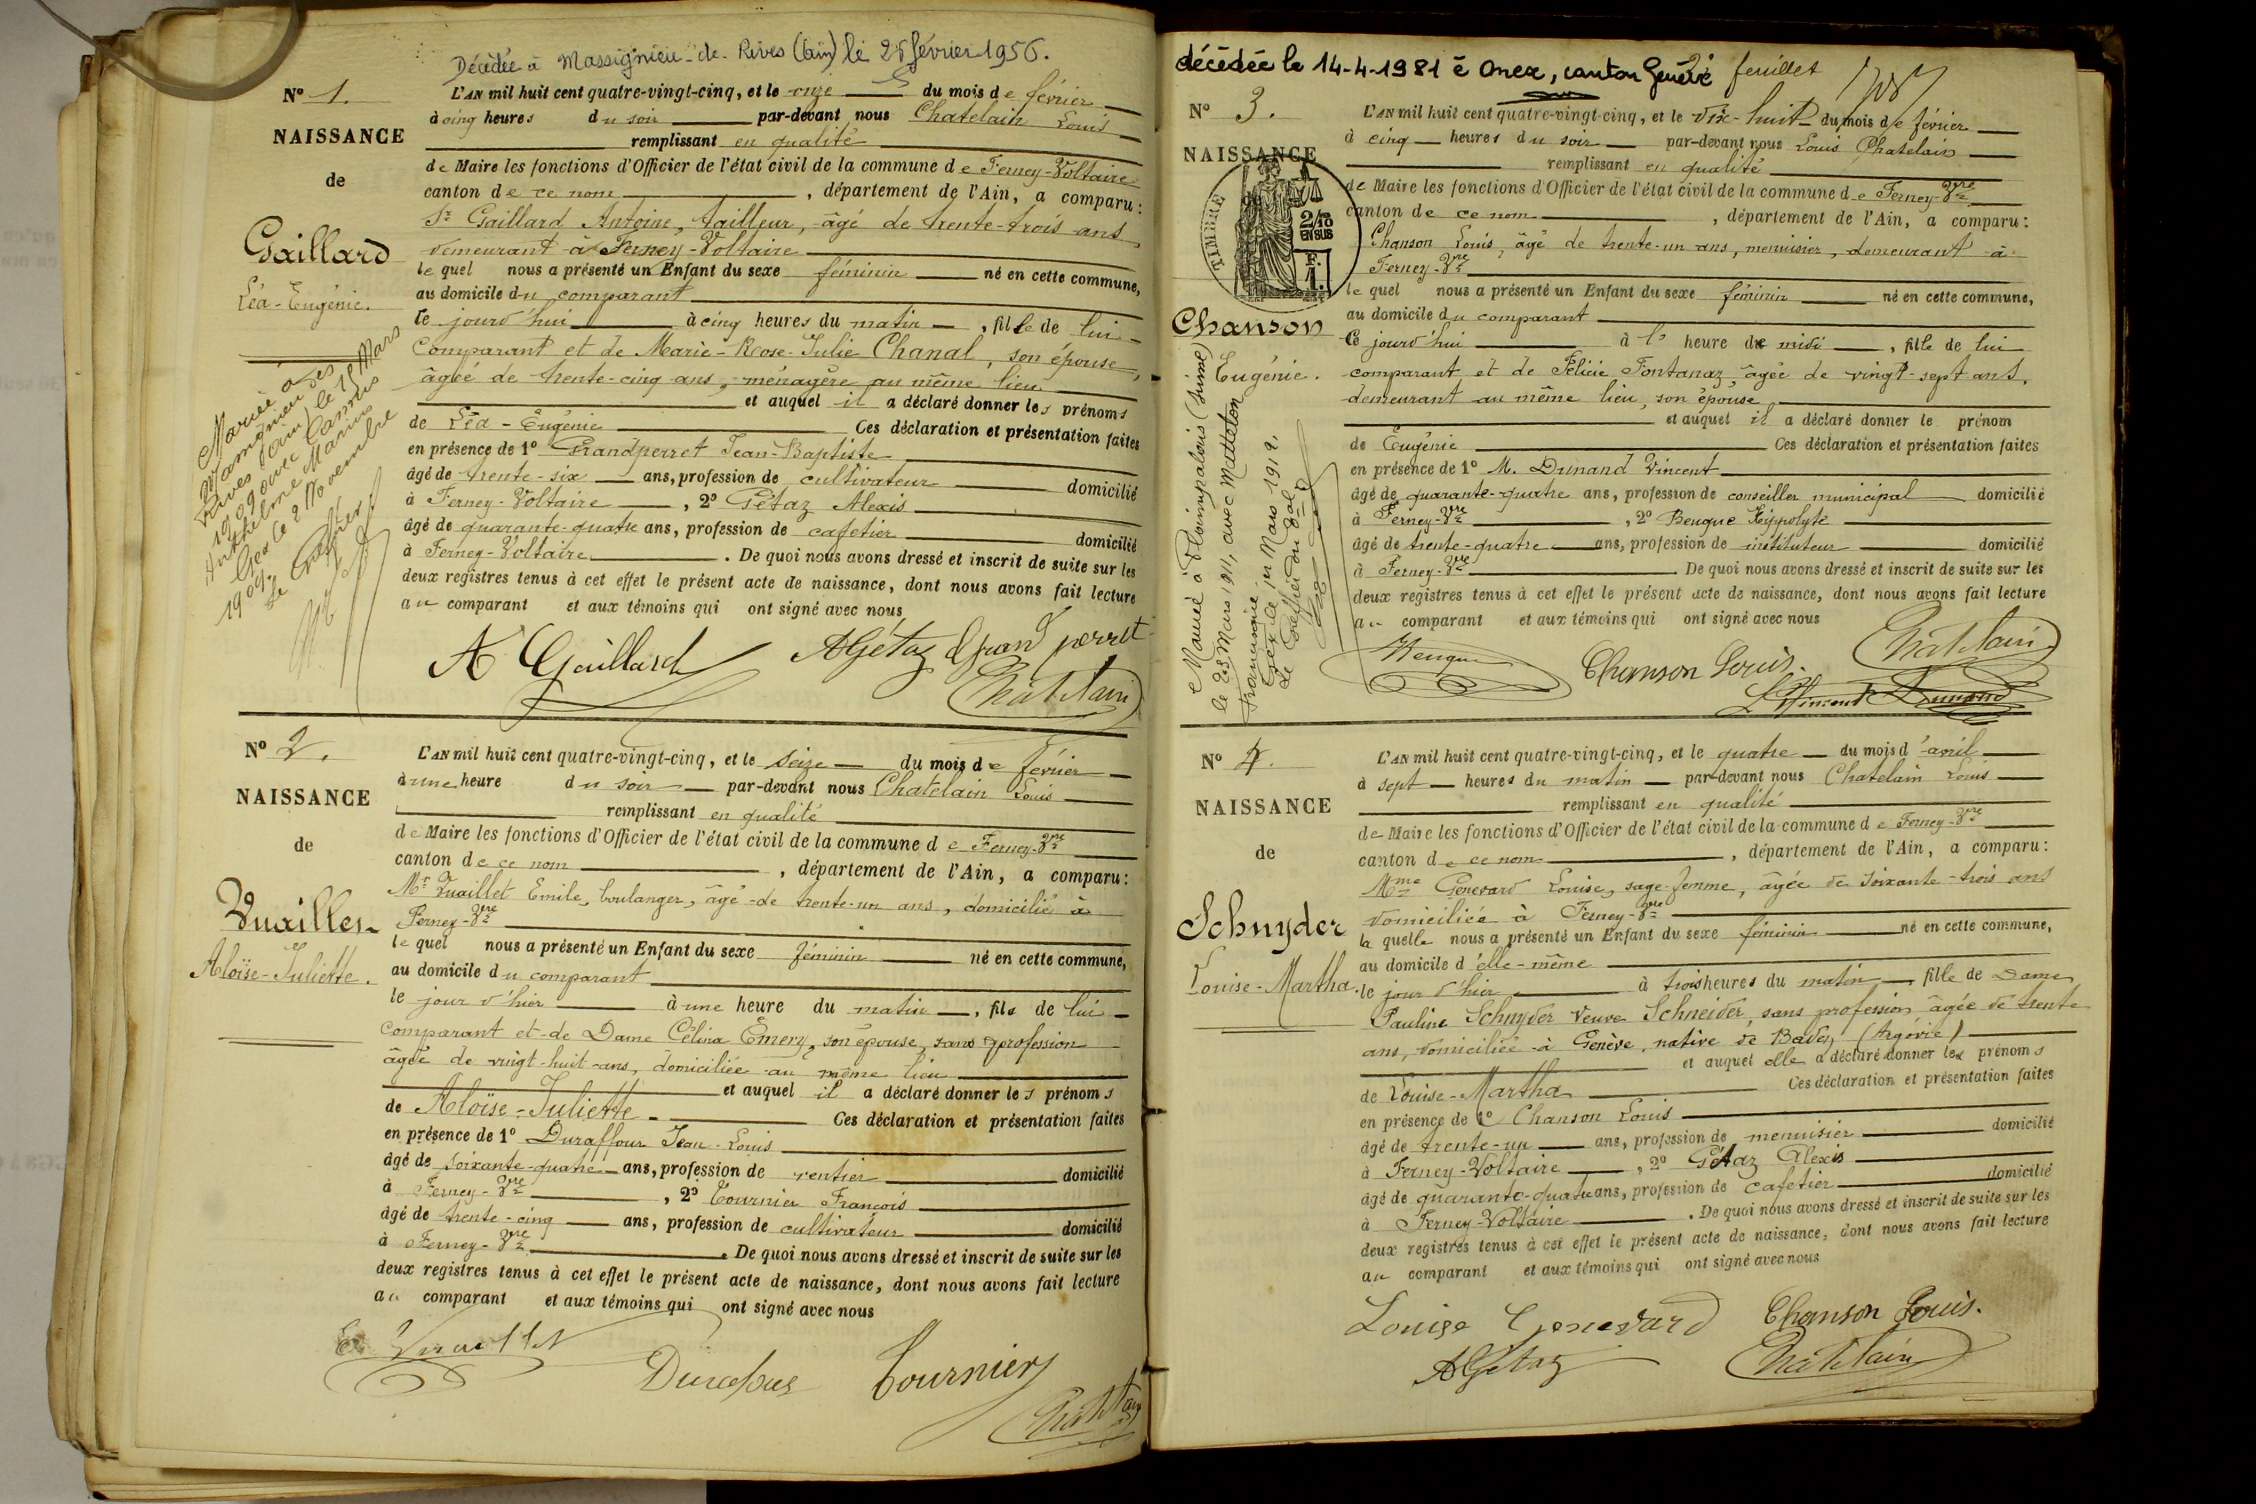 Décédée à Massignieu-de-Rives (Ain) le 25 février 1956.
N° 1.
NAISSANCE
de
Gaillard
Léa-Eugénie.
Mariée à
Massignieu des
Rives (Ain) le 1er Mars
1909 avec Camus
Anthelme Marius
Gex le 2 Novembre
1909.
Le Greffier
L'AN mil huit cent quatre-vingt-cinq, et le onze du mois de février
à cinq heures du soir par-devant nous Chatelain Louis
remplissant en qualité
de Maire les fonctions d'Officier de l'état civil de la commune de Ferney-Voltaire
canton de ce nom, département de l'Ain, a comparu:
Sr Gaillard Antoine, tailleur, âgé de trente-trois ans
demeurant à Ferney-Voltaire
le quel nous a présenté un Enfant du sexe féminin né en cette commune,
au domicile du comparant
ce jourd'hui à cinq heures du matin, fille de lui
comparant et de Marie-Rose-Julie Chanal, son épouse,
âgée de trente-cinq ans, ménagère au même lieu
et auquel il a déclaré donner les prénoms
de Léa-Eugénie Ces déclaration et présentation faites
en présence de 1° Grandperret Jean-Baptiste
âgé de trente-six ans, profession de cultivateur domicilié
à Ferney-Voltaire, 2° Gétaz Alexis
âgé de quarante-quatre ans, profession de cafetier domicilié
à Ferney-Voltaire. De quoi nous avons dressé et inscrit de suite sur les
deux registres tenus à cet effet le présent acte de naissance, dont nous avons fait lecture
au comparant et aux témoins qui ont signé avec nous
A Gaillard AGétaz Grandperret
Chatelain
N° 2.
NAISSANCE
de
Vuaillet
Aloïse-Juliette.
L'AN mil huit cent quatre-vingt-cinq, et le seize du mois de février
à une heure du soir par-devant nous Chatelain Louis
remplissant en qualité
de Maire les fonctions d'Officier de l'état civil de la commune de Ferney-Vre
canton de ce nom, département de l'Ain, a comparu:
Mr Vuaillet Emile, boulanger, âgé de trente-un ans, domicilié à
Ferney-Vre
le quel nous a présenté un Enfant du sexe féminin né en cette commune,
au domicile du comparant
le jour d'hier à une heure du matin, fils de lui
comparant et de Dame Célina Emery, son épouse, sans profession
âgée de vingt-huit ans, domiciliée au même lieu
et auquel il a déclaré donner les prénoms
de Aloïse-Juliette Ces déclaration et présentation faites
en présence de 1° Duraffour Jean-Louis
âgé de soixante-quatre ans, profession de rentier domicilié
à Ferney-Vre, 2° Tournier François
âgé de trente-cinq ans, profession de cultivateur domicilié
à Ferney-Vre. De quoi nous avons dressé et inscrit de suite sur les
deux registres tenus à cet effet le présent acte de naissance, dont nous avons fait lecture
au comparant et aux témoins qui ont signé avec nous
E. Vuaillet
Duraffour Tournier
Chatelain
décédée le 14-4-1981 à Onex, canton Genève
2e feuillet
N° 3.
NAISSANCE
TIMBRE
2/10
EN SUS
F.
1.
Chanson
Eugénie.
Mariée à Plainpalais (Suisse)
le 23 Mars 1911, avec Matteton
Gex le 1er Mars 1912.
Le Greffier du Tal
L'AN mil huit cent quatre-vingt-cinq, et le dix-huit du mois de février
à cinq heures du soir par-devant nous Louis Chatelain
remplissant en qualité
de Maire les fonctions d'Officier de l'état civil de la commune de Ferney-Vre
canton de ce nom, département de l'Ain, a comparu:
Chanson Louis, âgé de trente-un ans, menuisier, demeurant à
Ferney-Vre
le quel nous a présenté un Enfant du sexe féminin né en cette commune,
au domicile du comparant
ce jourd'hui à l' heure de midi, fille de lui
comparant et de Félicie Fontanaz âgée de vingt-sept ans,
demeurant au même lieu, son épouse
et auquel il a déclaré donner le prénom
de Eugénie Ces déclaration et présentation faites
en présence de 1° M. Dunand Vincent
âgé de quarante-quatre ans, profession de conseiller municipal domicilié
à Ferney-Vre, 2° Beugue Hippolyte
âgé de trente-quatre ans, profession de instituteur domicilié
à Ferney-Vre. De quoi nous avons dressé et inscrit de suite sur les
deux registres tenus à cet effet le présent acte de naissance, dont nous avons fait lecture
au comparant et aux témoins qui ont signé avec nous
Chanson Louis. Chatelain
Vincent Dunand
N° 4.
NAISSANCE
de
Schnyder
Louise-Martha.
L'AN mil huit cent quatre-vingt-cinq, et le quatre du mois d'avril
à sept heures du matin par-devant nous Chatelain Louis
remplissant en qualité
de Maire les fonctions d'Officier de l'état civil de la commune de Ferney-Vre
canton de ce nom, département de l'Ain, a comparu:
Mme Genevard Louise, sage-femme, âgée de soixante-trois ans
domiciliée à Ferney-Vre
la quelle nous a présenté un Enfant du sexe féminin né en cette commune,
au domicile d'elle-même
le jour d'hier à trois heures du matin, fille de Dame
Pauline Schnyder veuve Schneider, sans profession âgée de trente
ans, domiciliée à Genève, native de Baden (Argovie)
et auquel elle a déclaré donner les prénoms
de Louise-Martha Ces déclaration et présentation faites
en présence de 1° Chanson Louis
âgé de trente-un ans, profession de menuisier domicilié
à Ferney-Voltaire, 2° Gétaz Alexis
âgé de quarante-quatre ans, profession de cafetier domicilié
à Ferney-Voltaire. De quoi nous avons dressé et inscrit de suite sur les
deux registres tenus à cet effet le présent acte de naissance, dont nous avons fait lecture
au comparant et aux témoins qui ont signé avec nous
Louise Genevard Chanson Louis.
AGétaz Chatelain